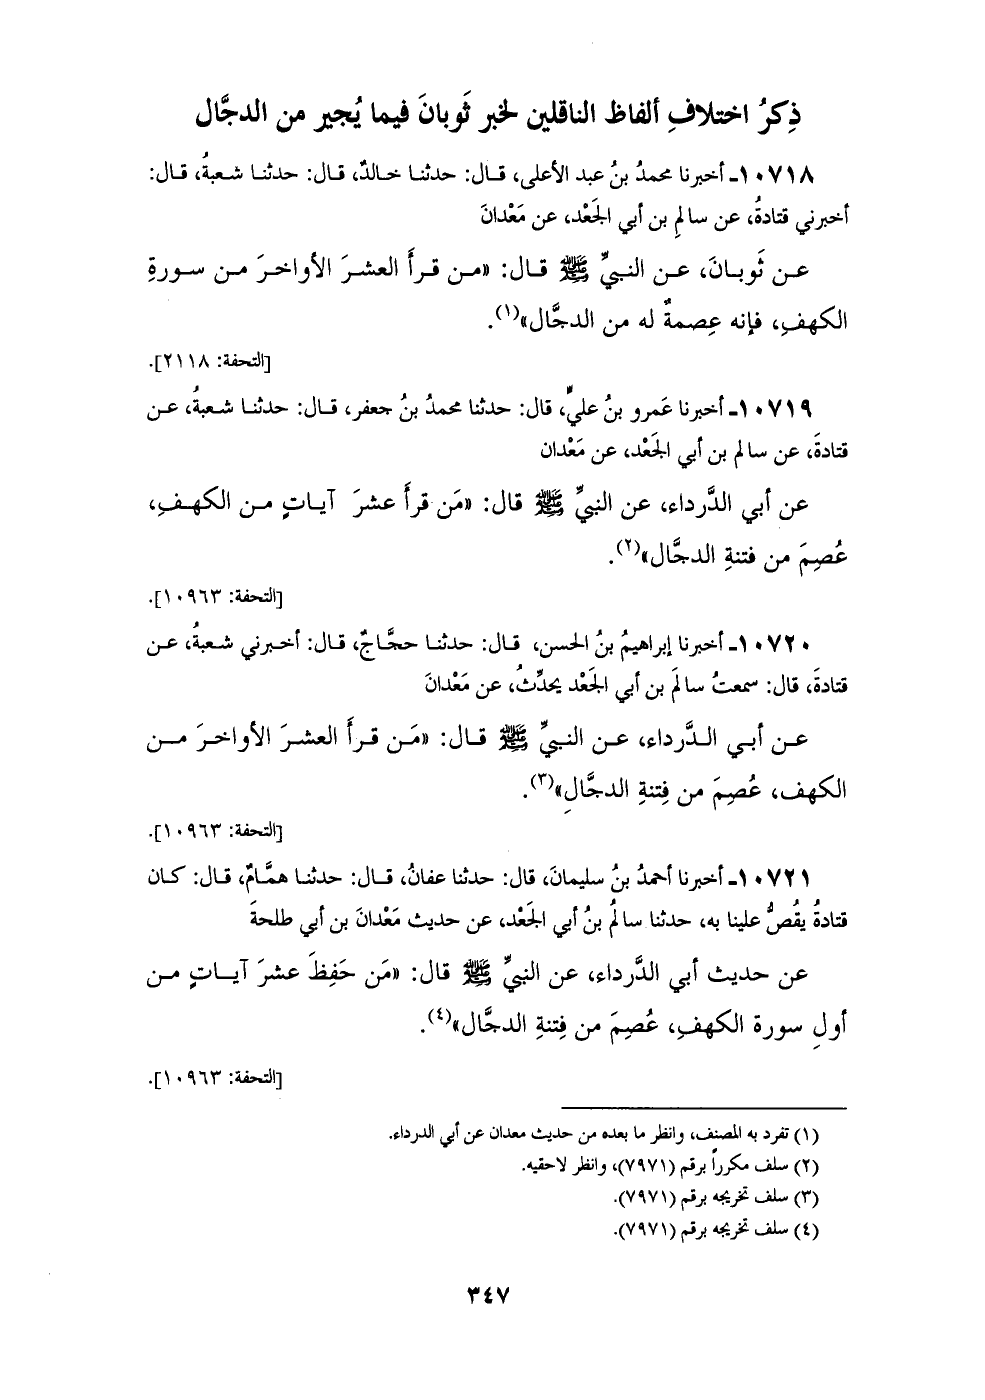 ذِكرُ اختلافِ ألفاظ الناقلين لخبر ثَوبانَ فيما يُجير من الدجَّال
١٠٧١٨ـ أخبرنا محمدُ بنُ عبد الأعلى، قـال: حدثنـا خـالدٌ، قال: حدثنـا شـعبةُ، قـال:
أخبرني قتادةُ، عن سالمِ بن أبي الجَعْد، عن مَعْدانَ
عـن ثَوبـانَ، عـن النبـيِّ ﷺ قـال: «مـن قـرأَ العشـرَ الأواخـرَ مـن سـورةِ
الكهفِ، فإنه عِصمةٌ له من الدجَّال»(١).
[التحفة: ٢١١٨].
١٠٧١٩ـ أخبرنا عَمرو بنُ عليٍّ، قال: حدثنا محمدُ بنُ جعفر، قـال: حدثنـا شـعبةُ، عـن
قتادةَ، عن سالم بن أبي الجَعْد، عن مَعْدان
عن أبي الدَّرداء، عن النبيِّ ﷺ قال: «مَن قرأَ عشرَ آيـاتٍ مـن الكهـفِ،
عُصِمَ من فتنةِ الدجَّال»(٢).
[التحفة: ١٠٩٦٣].
١٠٧٢٠ـ أخبرنا إبراهيمُ بنُ الحسن، قـال: حدثنـا حجَّاجٌ، قـال: أخـبرني شـعبةُ، عـن
قتادةَ، قال: سمعتُ سالمَ بن أبي الجَعْد يحدِّثُ، عن مَعْدانَ
عـن أبـي الـدَّرداء، عـن النبـيِّ ﷺ قـال: «مَـن قـرأَ العشـرَ الأواخـرَ مـــن
الكهف، عُصِمَ من فِتنةِ الدجَّالِ»(٣).
[التحفة: ١٠٩٦٣].
١٠٧٢١ـ أخبرنا أحمدُ بنُ سليمانَ، قال: حدثنا عفانُ، قـال: حدثنـا همَّامٌ، قال: كـان
قتادةُ يقُصُّ علينا به، حدثنا سالمُ بنُ أبي الجَعْد، عن حديث مَعْدانَ بن أبي طلحةَ
عن حديث أبي الدَّرداء، عن النبيِّ ﷺ قال: «مَن حَفِظَ عشرَ آيـاتٍ مـن
أولِ سورة الكهفِ، عُصِمَ من فِتنةِ الدجَّال»(٤).
[التحفة: ١٠٩٦٣].
(١) تفرد به المصنف، وانظر ما بعده من حديث معدان عن أبي الدرداء.
(٢) سلف مكرراً برقم (٧٩٧١)، وانظر لاحقيه.
(٣) سلف تخريجه برقم (٧٩٧١).
(٤) سلف تخريجه برقم (٧٩٧١).
٣٤٧